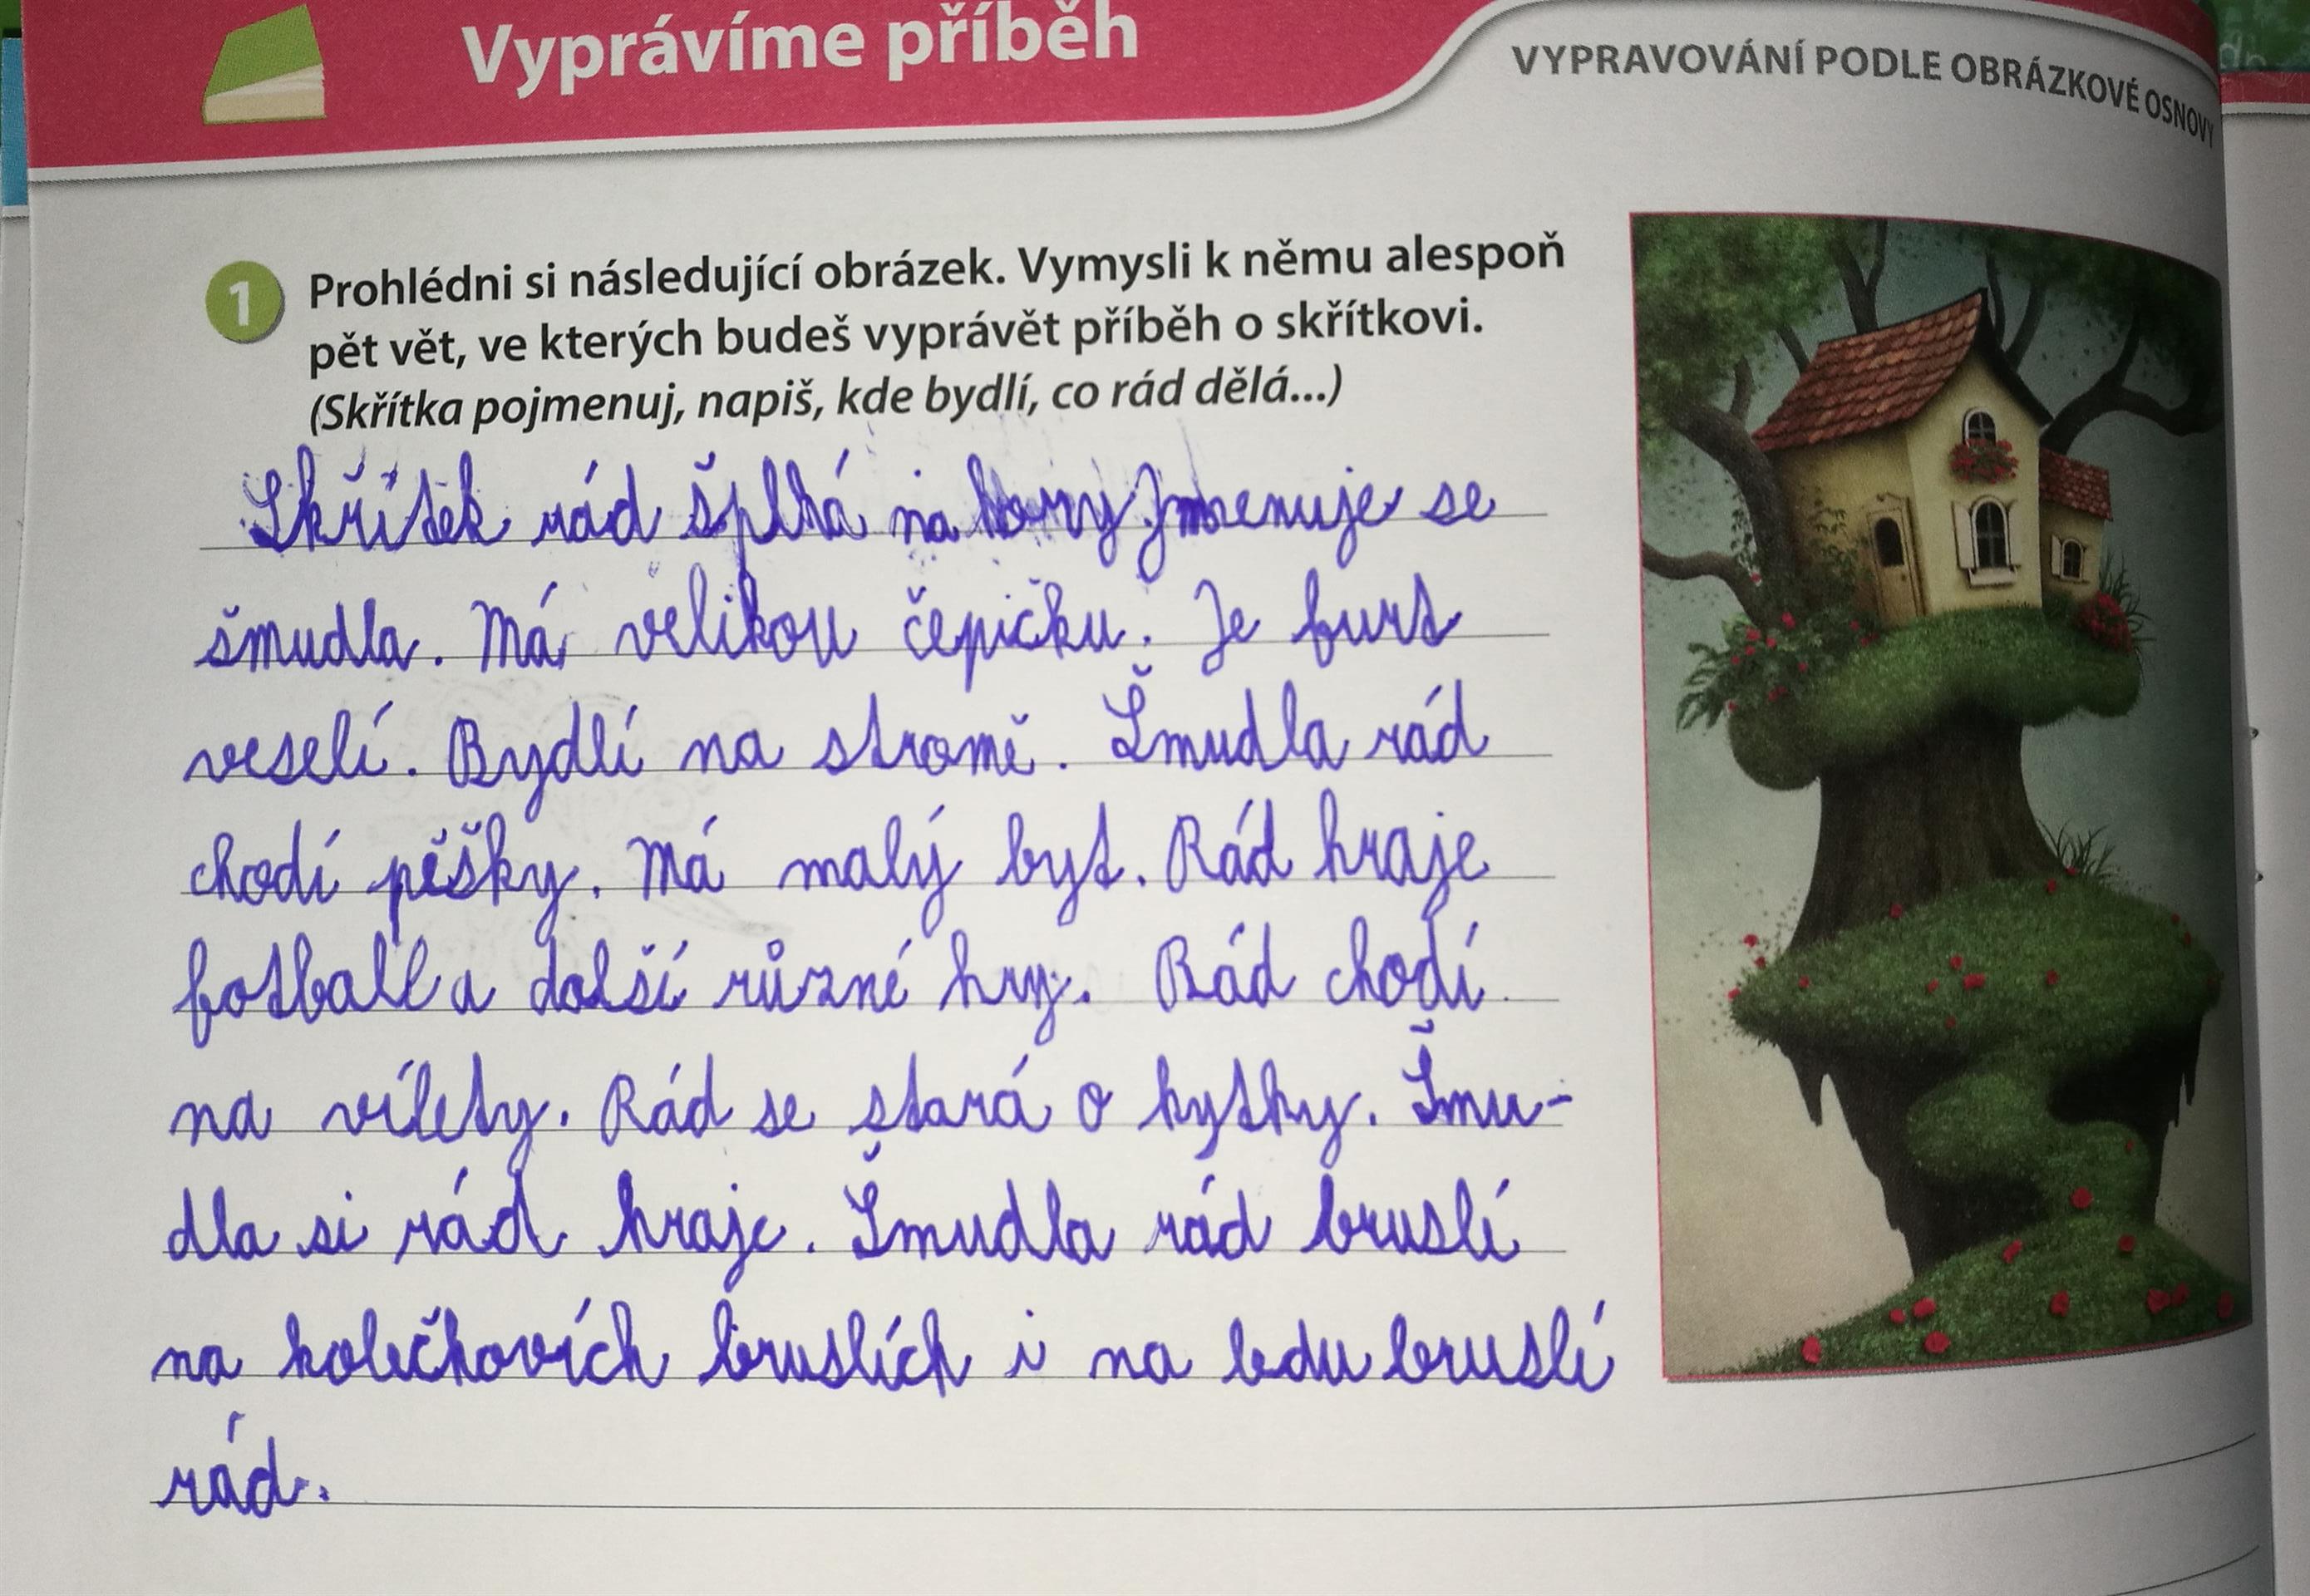 Vyprávíme příběh
VYPRAVOVÁNÍ PODLE OBRÁZKOVÉ OSNOVY
1 Prohlédni si následující obrázek. Vymysli k němu alespoň
pět vět, ve kterých budeš vyprávět příběh o skřítkovi.
(Skřítka pojmenuj, napiš, kde bydlí, co rád dělá...)
Skřítek rád šplhá na hory Jmenuje se
šmudla. Má velikou čepičku. Je furt
veselí. Bydlí na stromě. Šmudla rád
chodí pěšky. Má malý byt. Rád hraje
fotball a další různé hry. Rád chodí
na vílety. Rád se stará o kytky. Šmu-
dla si rád hraje. Šmudla rád bruslí
na kolečkovích bruslích i na ledu bruslí
rád.